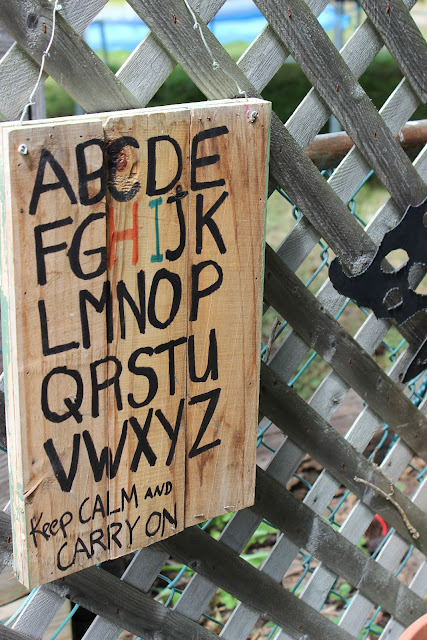 ABCDE
FGHIJK
LMNOP
QRSTU
VWXYZ
Keep CALM AND
CARRY ON